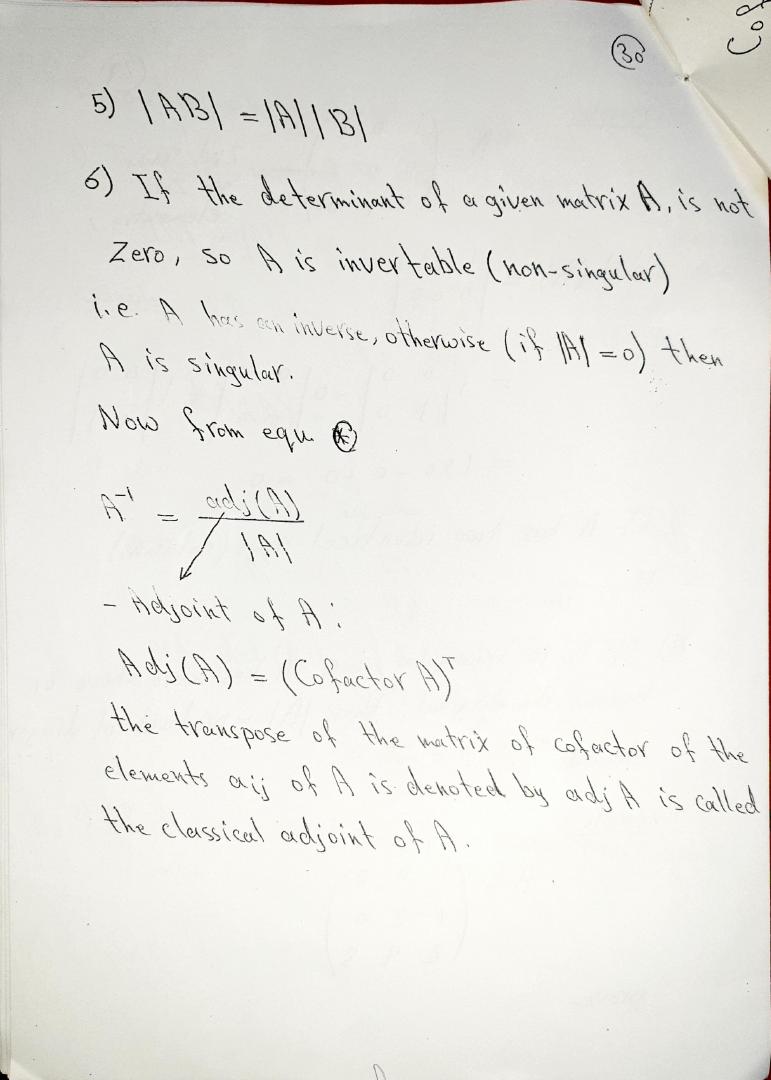 30
Cof
5) |AB| = |A| |B|
6) If the determinant of a given matrix A, is not
Zero, so A is invertable (non-singular)
i.e. A has an inverse, otherwise (if |A| = 0) then
A is singular.
Now from equ. *
A⁻¹ = adj(A) / |A|
- Adjoint of A:
Adj(A) = (Cofactor A)ᵀ
the transpose of the matrix of cofactor of the
elements aij of A is denoted by adj A is called
the classical adjoint of A.